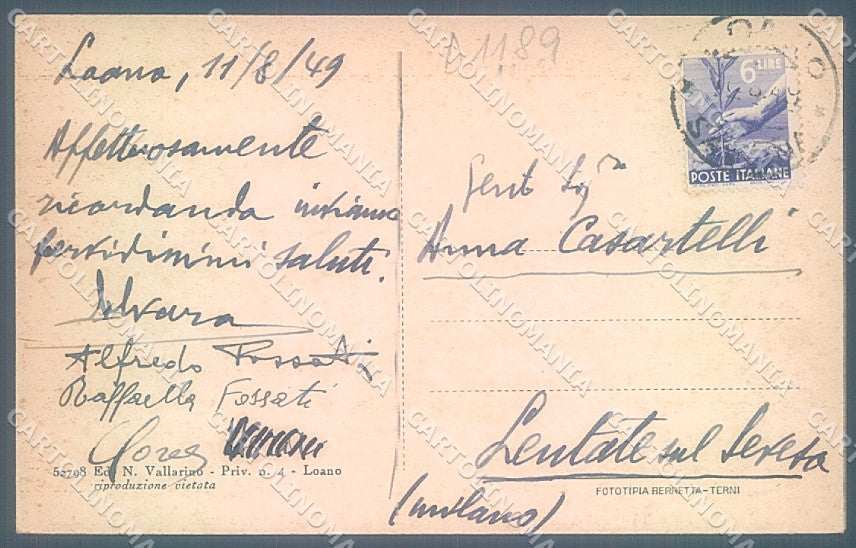 Loano, 11/8/49
Affettuosamente
ricordando inviamo
fervidissimi saluti.
Alfredo Fossati
Raffaella Fossati
52798 Ed. N. Vallarino - Priv. n. 4 - Loano
riproduzione vietata
1189
6 LIRE
POSTE ITALIANE
Gent Sigra
Anna Casartelli
Lentate sul Seveso
(milano)
FOTOTIPIA BERRETTA-TERNI
CARTOLINOMANIA